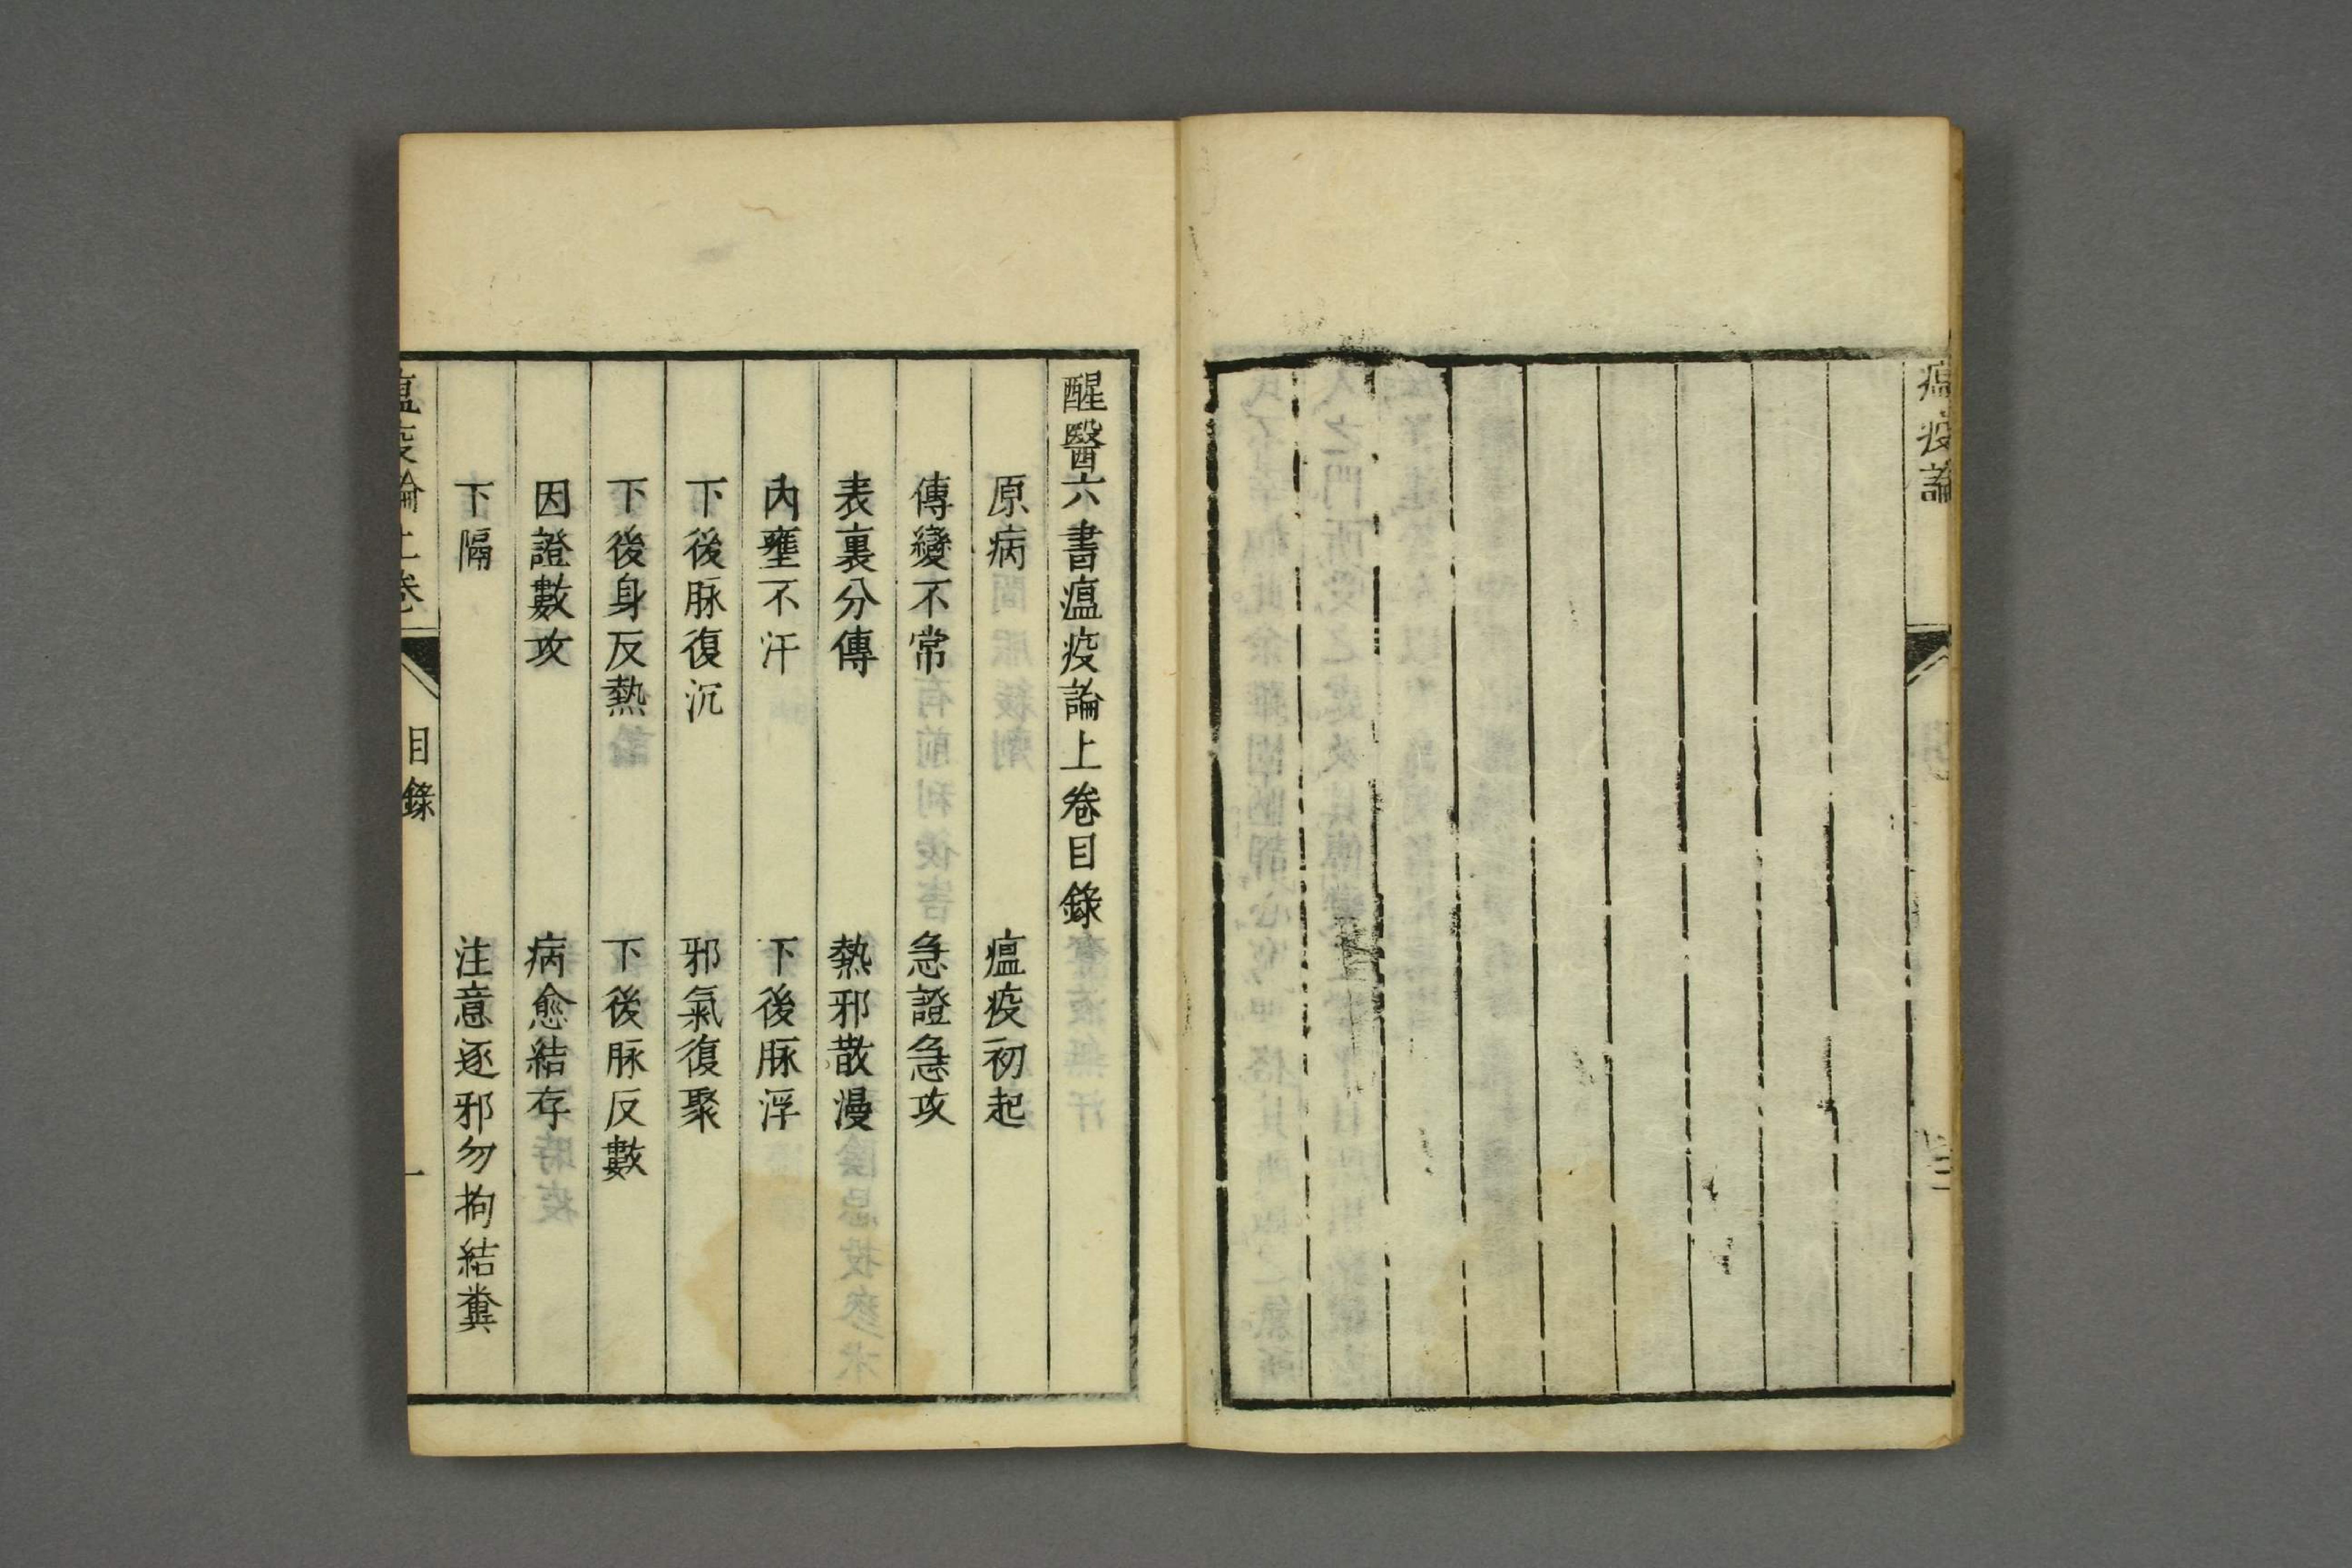 瘟疫論
醒醫六書瘟疫論上卷目錄
原病 瘟疫初起
傳變不常 急證急攻
表裏分傳 熱邪散漫
內壅不汗 下後脉浮
下後脉復沉 邪氣復聚
下後身反熱 下後脉反數
因證數攻 病愈結存
下隔 注意逐邪勿拘結糞
瘟疫論上卷 目錄 一